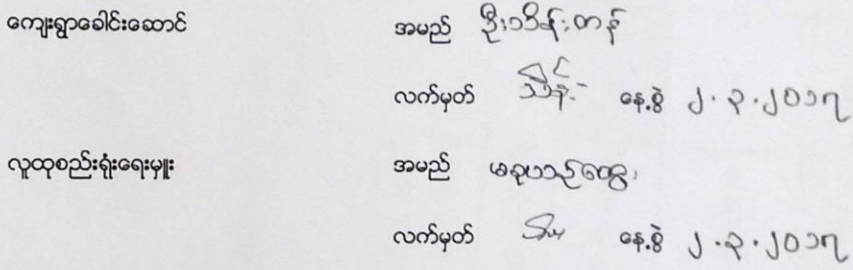 ကျေးရွာခေါင်းဆောင် အမည် ဦးသိန်းတန်
လက်မှတ် သိန်း နေ့စွဲ ၂.၃.၂၀၁၇
လူထုစည်းရုံးရေးမှူး အမည်
လက်မှတ် နေ့စွဲ ၂.၃.၂၀၁၇